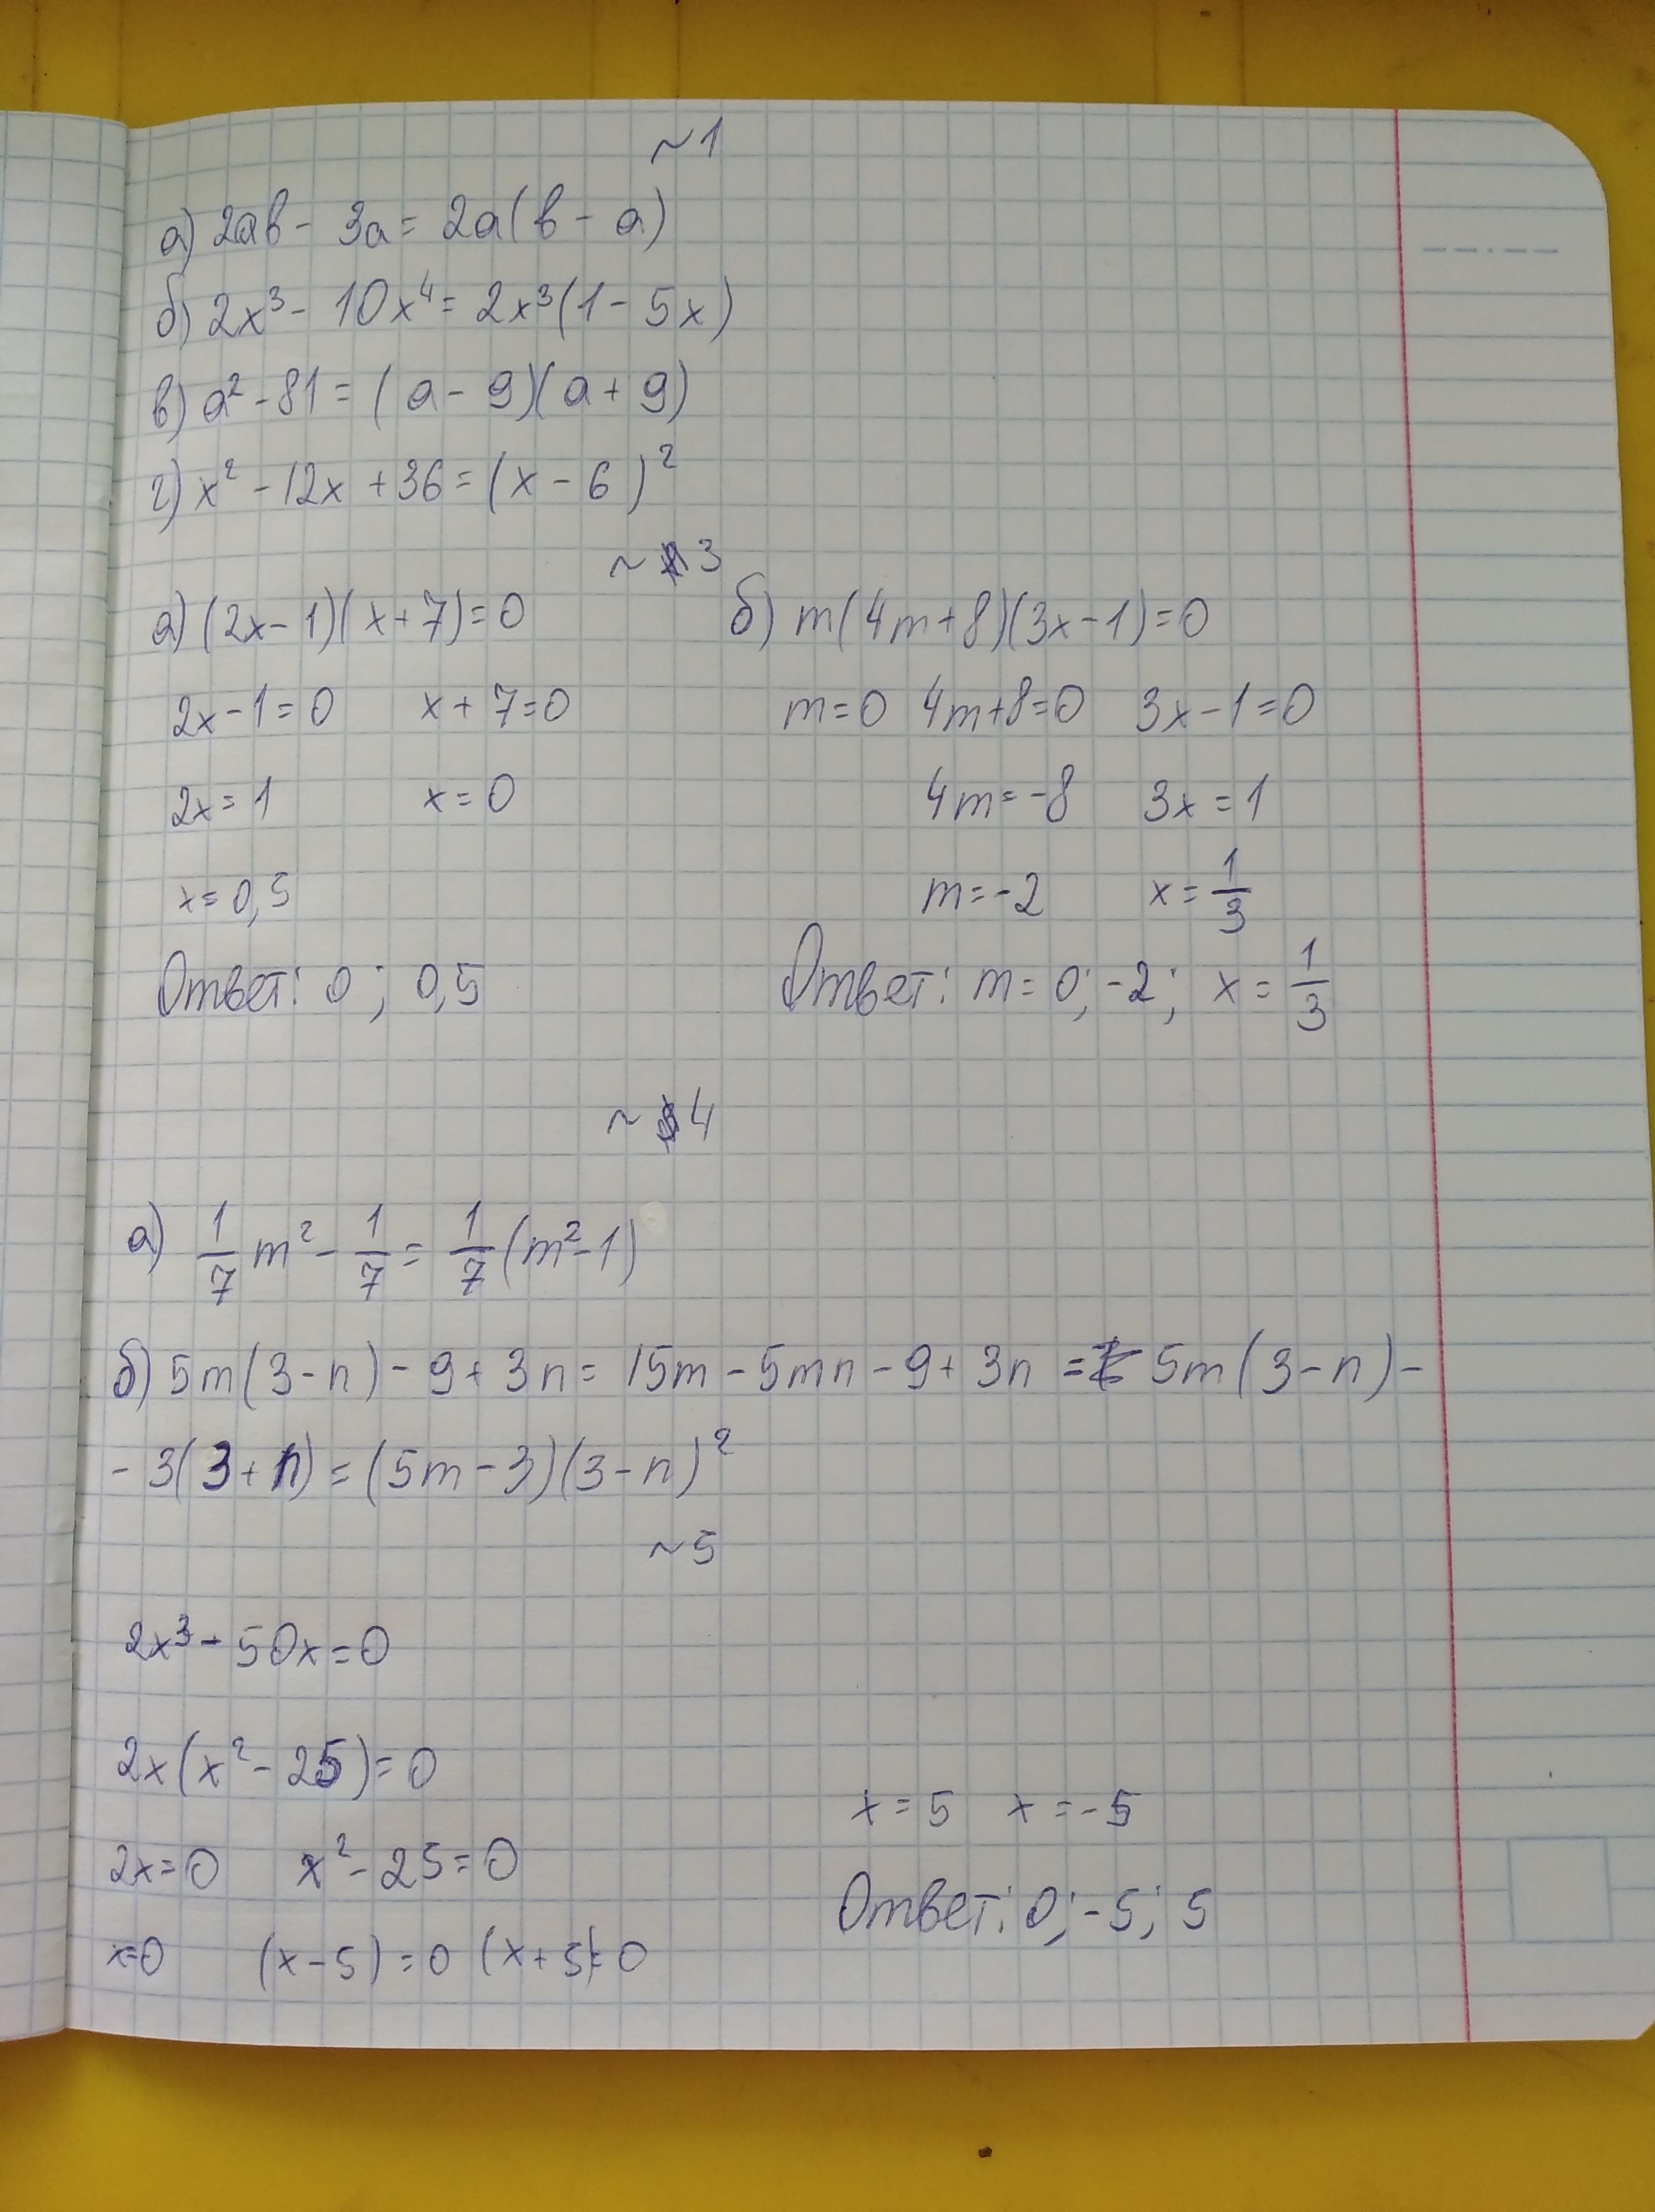 ~1
а) 2ab - 3a = 2a(b - a)
б) 2x³ - 10x⁴ = 2x³(1 - 5x)
в) a² - 81 = (a - 9)(a + 9)
г) x² - 12x + 36 = (x - 6)²
~ 3
а) (2x - 1)(x + 7) = 0
2x - 1 = 0 x + 7 = 0
2x = 1 x = 0
x = 0,5
Ответ: 0; 0,5
б) m(4m + 8)(3x - 1) = 0
m = 0 4m + 8 = 0 3x - 1 = 0
4m = -8 3x = 1
m = -2 x = 1/3
Ответ: m = 0; -2; x = 1/3
~ 4
а) 1/7 m² - 1/7 = 1/7 (m² - 1)
б) 5m(3 - n) - 9 + 3n = 15m - 5mn - 9 + 3n = 5m(3 - n) -
- 3(3 + n) = (5m - 3)(3 - n)²
~5
2x³ - 50x = 0
2x(x² - 25) = 0
2x = 0 x² - 25 = 0
x = 0 (x - 5) = 0 (x + 5) = 0
x = 5 x = -5
Ответ: 0; -5; 5